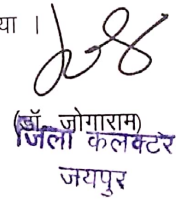 या ।
(डॉ. जोगाराम)
जिला कलक्टर
जयपुर